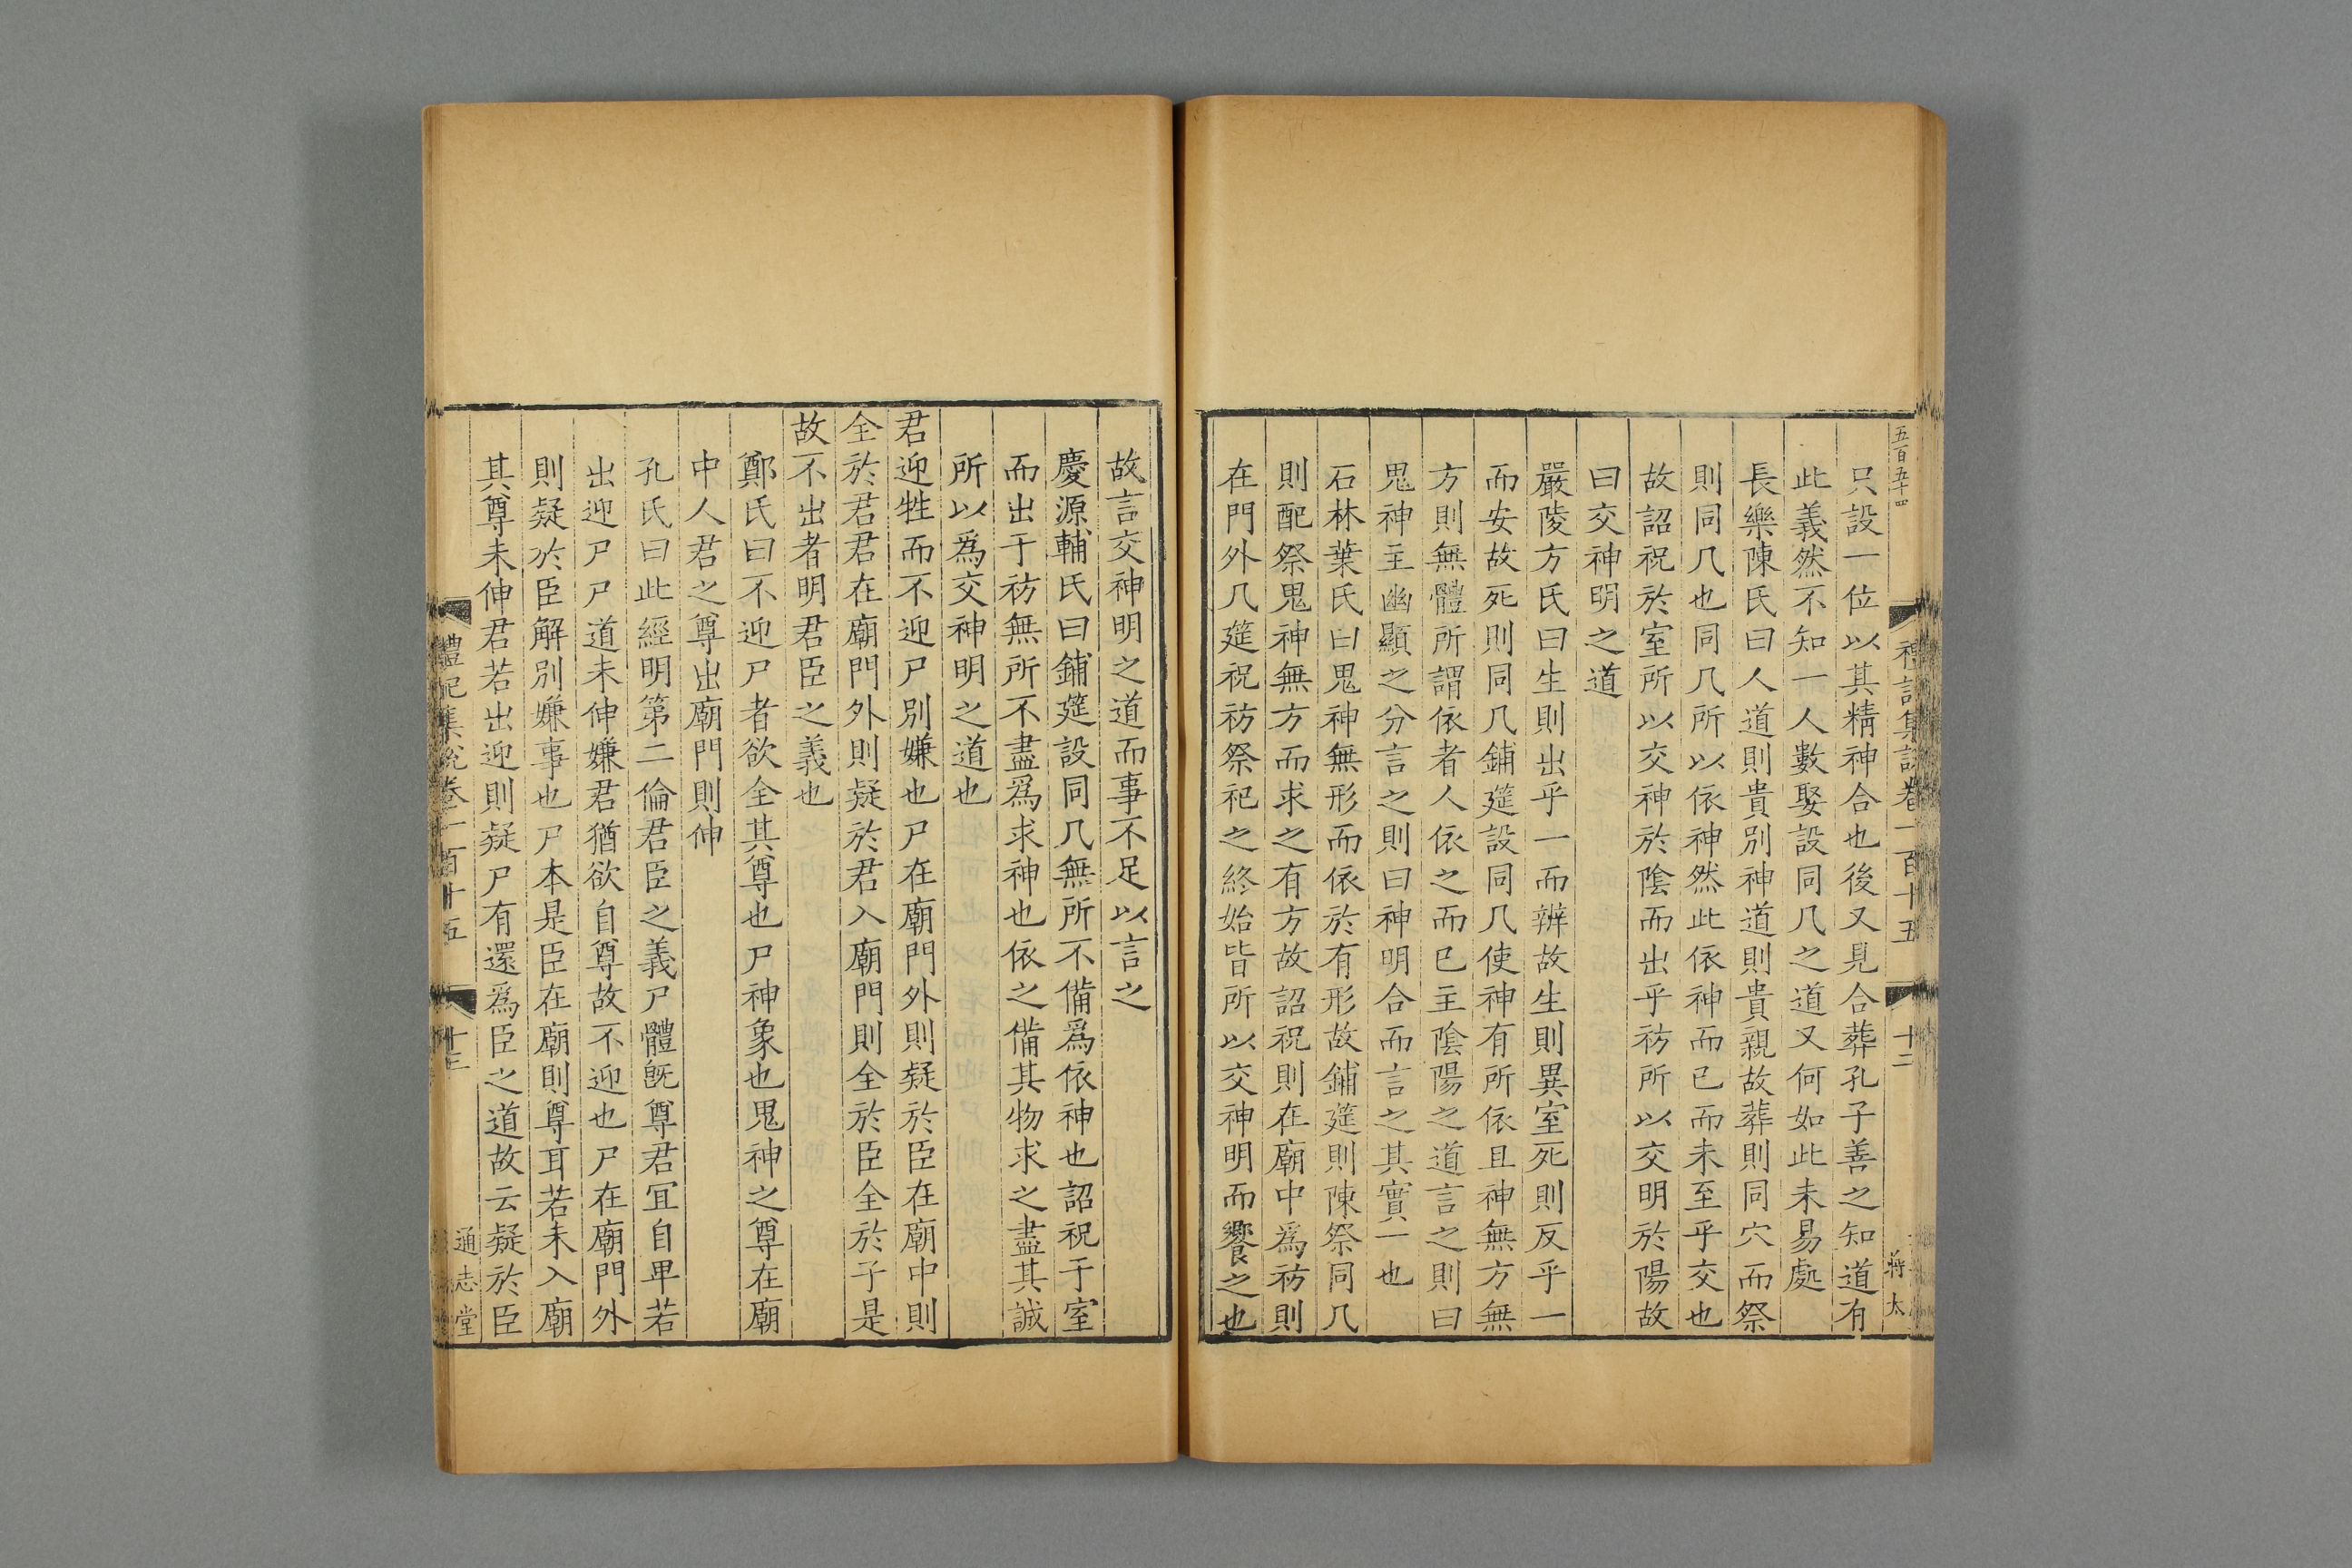 五百五十四
禮記集說卷一百十五
十二
蔣太
只設一位以其精神合也後又見合葬孔子善之知道有
此義然不知一人數娶設同几之道又何如此未易處
長樂陳氏曰人道則貴別神道則貴親故葬則同穴而祭
則同几也同几所以依神然此依神而已而未至乎交也
故詔祝於室所以交神於陰而出乎祊所以交明於陽故
曰交神明之道
嚴陵方氏曰生則出乎一而辨故生則異室死則反乎一
而安故死則同几鋪筵設同几使神有所依且神無方無
方則無體所謂依者人依之而已主陰陽之道言之則曰
鬼神主幽顯之分言之則曰神明合而言之其實一也
石林葉氏曰鬼神無形而依於有形故鋪筵則陳祭同几
則配祭鬼神無方而求之有方故詔祝則在廟中爲祊則
在門外几筵祝祊祭祀之終始皆所以交神明而饗之也
故言交神明之道而事不足以言之
慶源輔氏曰鋪筵設同几無所不備爲依神也詔祝于室
而出于祊無所不盡爲求神也依之備其物求之盡其誠
所以爲交神明之道也
君迎牲而不迎尸別嫌也尸在廟門外則疑於臣在廟中則
全於君君在廟門外則疑於君入廟門則全於臣全於子是
故不出者明君臣之義也
鄭氏曰不迎尸者欲全其尊也尸神象也鬼神之尊在廟
中人君之尊出廟門則伸
孔氏曰此經明第二倫君臣之義尸體旣尊君宜自卑若
出迎尸尸道未伸嫌君猶欲自尊故不迎也尸在廟門外
則疑於臣解別嫌事也尸本是臣在廟則尊耳若未入廟
其尊未伸君若出迎則疑尸有還爲臣之道故云疑於臣
禮記集說卷一百十五
十三
通志堂